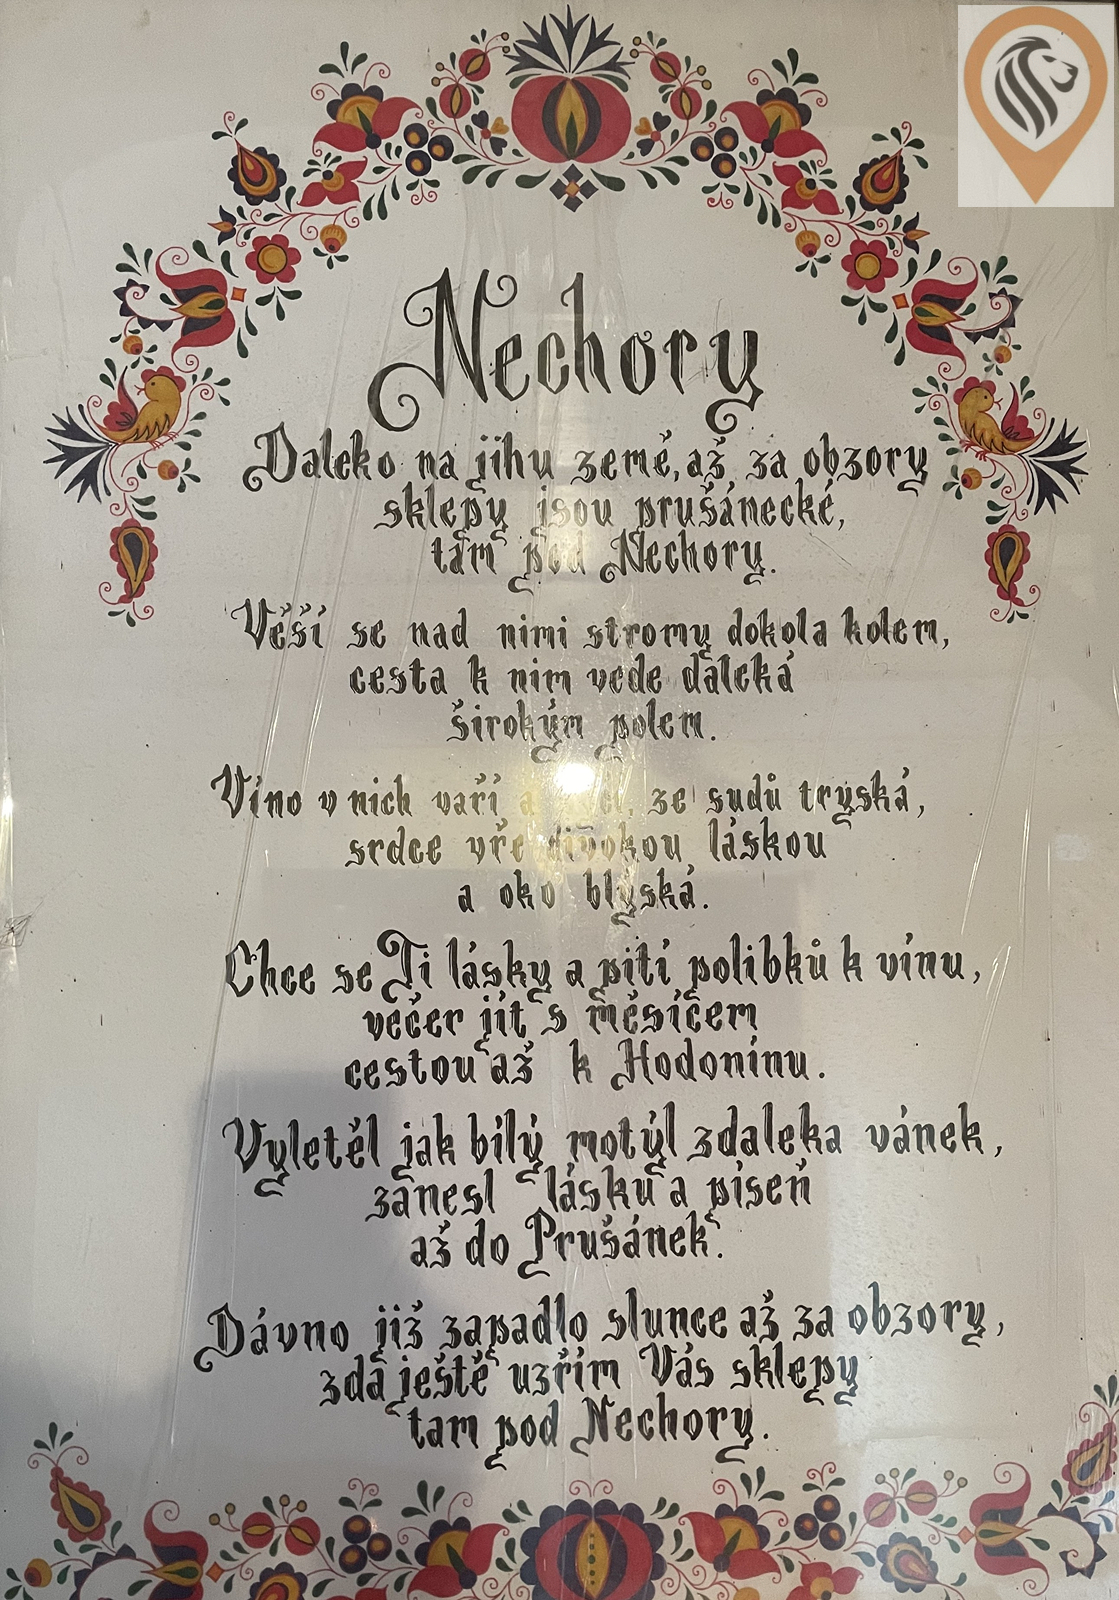 Nechory
Daleko na jihu země, až za obzory
sklepy jsou prušánecké,
tam pod Nechory.
Věší se nad nimi stromy dokola kolem,
cesta k nim vede daleká
širokým polem.
Víno v nich vaří a ze sudů tryská,
srdce vře divokou láskou
a oko blýská.
Chce se Ti lásky a pití polibků k vínu,
večer jít s měsíčem
cestou až k Hodonínu.
Vyletěl jak bílý motýl zdaleka vánek,
zanesl lásku a píseň
až do Prušánek.
Dávno již zapadlo slunce až za obzory,
zda ještě uzřím Vás sklepy
tam pod Nechory.